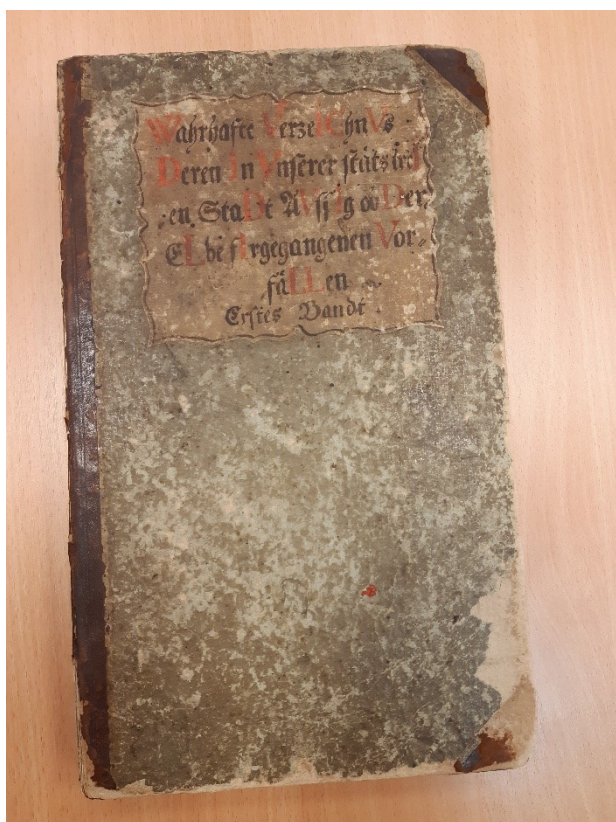 Wahrhafte VerzeIChnVs
Deren In Vnserer stäts
en StaDt AVssIg ob Der
ELbe fIrgegangenen Vor=
fäLLen
Erstes Bandt.